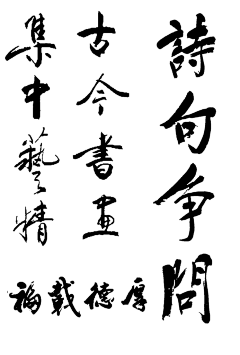 詩句争問
古今書畫
集中藝精
厚德載福